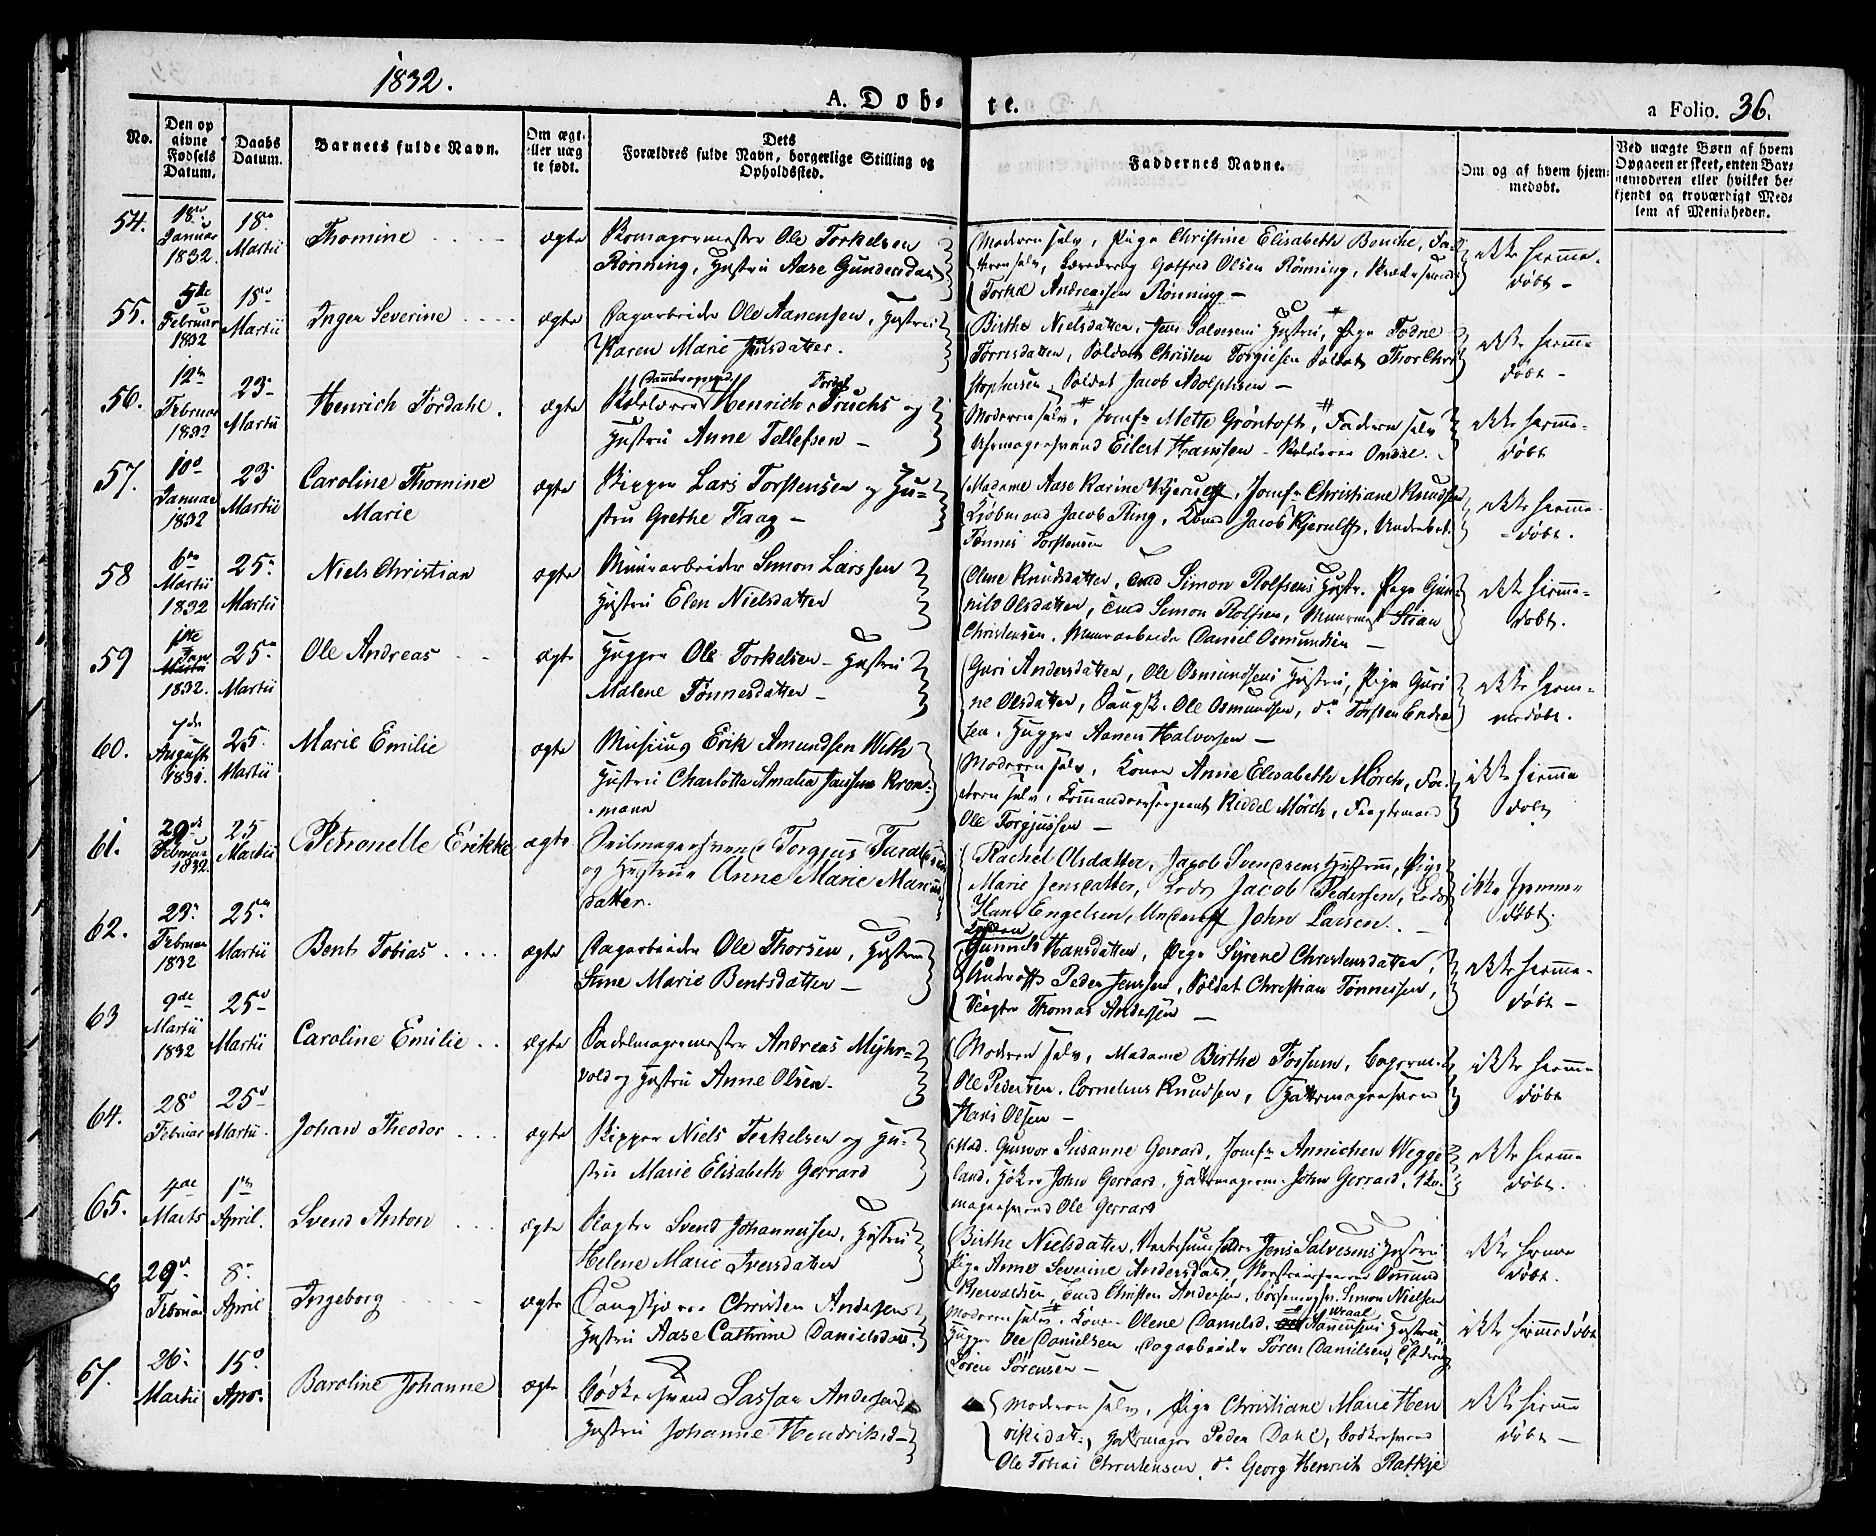 1832.
A. Døb-
te.
a Folio. 36.
No.
Den op
givne
Fødsels
Datum.
Daabs
Datum.
Barnets fulde Navn.
Om ægt-
eller uæg
te født.
Dets
Forældres fulde Navn, borgerlige Stilling og
Opholdssted.
Faddernes Navne.
Om og af hvem hjem-
medøbt.
Ved uægte Børn af hvem
Opgaven er skeet, enten Bar-
nemoderen eller hvilket be-
kjendt og troværdigt Med-
lem af Menigheden.
54.
18de
Januar
1832.
18de
Martii
Thomine
ægte
Skomagermester Ole Torkelsen
Rønning, Hustru Aase Gundersdat
Moderen selv, Pige Christine Elisabeth Bouche, Fa-
deren selv, Gotfred Olsen Rønning,
Torkel Andreassen Rønning
ikke hjemme-
døbt
55.
5te
Februar
1832
18de
Martii
Inger Severine
ægte
Dagarbeider Ole Aanensen, Hustru
Karen Marie Jensdatter.
Birthe Nielsdatter, Jens Salvesens Hustru, Pige Todne
Torresdatter, Soldat Christen Torgiesen Soldat Thor Chri
stophersen, Soldat Jacob Adolphsen
ikke hjemme
døbt
56.
12te
Februar
1832
23de
Martii
Henrich Tørdahl.
ægte
Henrich Fruchs og
Hustru Anne Tellefsen
Moderen selv, Jomfr Mette Grøntoft, Faderen selv
Uhrmagersvend Eilert Hanssen Omdal.
ikke hjemme-
døbt
57.
10de
Januar
1832
23
Martii
Caroline Thomine
Marie
ægte
Skipper Lars Torstensen og Hu-
stru Grethe Faag
Madame Aase Karine Kjerulff, Jomfr Christiane Knudsen
Kjøbmand Jacob Ring, Jacob Kjerulff,
Tønnes Torstensen
ikke hjemme-
døbt.
58
6te
Martii
1832
25de
Martii
Niels Christian
ægte
Muurarbeider Simon Larssen
Hustru Elen Nielsdatter
Olene Knudsdatter, Simon Rolfsens Hustr. Pige Gun-
nild Olsdatter, Simon Rolfsen, Muurmest Stian
Christensen, Muurarbeider Daniel Osmundsen
ikke hjemme-
døbt.
59
1ste
Jan
1832.
25de
Martii
Ole Andreas
ægte
Hugger Ole Torkelsen Hustru
Malene Tønnesdatter
Guri Andersdatter, Ole Osmundsens Hustru, Pige Guri
ne Olsdatter, Ole Osmundsen, do Torsten Endre
sen, Hugger Aanen Halvorsen
ikke hjem-
medøbt.
60.
7de
August
1831.
25.
Martii
Marie Emilie
ægte
Musicus Erik Amundsen With
Hustru Charlotte Amalia Jansen Kron-
mann
Moderen selv, Konen Anne Elisabeth Mørch, Fa-
deren selv, Commandeersergeant Riddel Mørch,
Ole Torgjussen
ikke hjemme
døbt
61.
29de
Februar
1832.
25
Martii
Petronelle Erikke
ægte
Seilmagersvend Torgius
og Hustrue Anne Marie Marcus
datter.
Rachel Olsdatter, Jacob Svendsens Hustrue, Pige
Marie Jensdatter, Lods Jacob Pedersen, Lods
Hans Engelsen, John Larsen.
ikke hjemme-
døbt.
62.
23de
Februar
1832
25de
Martii
Bent Tobias
ægte
Dagarbeider Ole Thorsen, Hustrue
Sine Marie Bentsdatter
Gunnild Hansdatter, Pige Syrene Christensdatter,
Peder Jenssen, Soldat Christian Tønnessen,
Slagter Thomas Andersen
ikke hjemme-
døbt
63
9de
Martii
1832
25de
Martii
Caroline Emilie
ægte
Sadelmagermester Andreas Myhr-
vold og Hustru Anne Olsen
Moderen selv, Madame Birthe Fossum, Bagerm.
Ole Pedersen, Cornelius Knudsen,
Hans Olsen
ikke hjemme-
døbt
64.
28de
Februar
25de
Martii.
Johan Theodor
ægte
Skipper Niels Terkelsen og Hu-
stru Marie Elisabeth Gerrard
Mad. Gunvor Susanne Gerrard, Jomfr Annichen Wegge
land, Høker John Gerrard, Hattemagerm. John Gerrard, Sko-
magersvend Ole Gerrard
ikke hjemme
døbt.
65.
4de
Marts
1ste
April.
Svend Anton
ægte
Slagter Svend Johannessen, Hustru
Helene Marie Iversdatter
Birthe Nielsdatter, Jens Salvesens Hustru
Pige Anne Severine Andersdat,
Christen Andersen, Simon Nielsen
ikke hjemme
døbt.
66
29de
Februar
8de
April
Ingeborg
ægte
Christen Andersen
Hustru Aase Cathrine Danielsdatt.
Moderen selv, Konen Olene Danielsd. Aanensens Hustru,
Hugger Ole Danielsen Dagarbeider Søren Danielsen,
Søren Sørensen
ikke hjemmedøbt
67.
26de
Martii
15de
Apr.
Baroline Johanne
ægte
Bødkersvend Lassan Andersen
Hustru Johanne Hendriksd
Moderen selv, Pige Christiane Marie Hen
riksdatt., Hattemager Peder Dahl, Bødkersvend
Ole Tobias Christensen, do Georg Henrich Ratkje
ikke hjemme
døbt